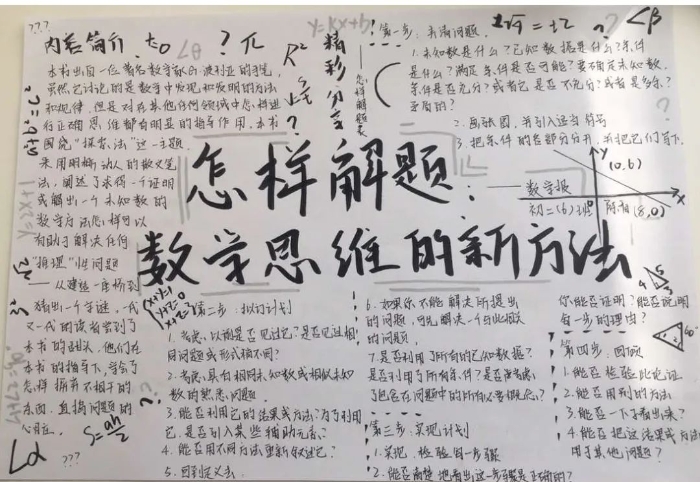 ???
内容简介
t=0
∠θ
?
π
本书出自一位著名数学家的手笔,
虽然它讨论的是数学中发现和发明的方法
和规律,但是对在其他任何领域中怎样进
行正确思维都有明显的指导作用。本书
围绕“探索法”这一主题,
采用明晰动人的散文笔
法,阐述了求得一个证明
或解出一个未知数的
数学方法怎样可以
有助于解决任何
“推理”性问题
——从建造一座桥到
猜出一个字谜。一代
又一代的读者尝到了
本书的甜头,他们在
本书的指导下,学会了
怎样摒弃不相干的
东西,直捣问题的
心脏。
S=ah/2
∠α
???
a²+b²=c²
y=2x+1
R²
精彩分享
y=kx+b
?
——怎样解题表
怎样解题:
数学思维的新方法
——数学报
初二(6)班
第一步:弄清问题。
±√4=±2
?
∠β
1.未知数是什么?已知数据是什么?条件
是什么?满足条件是否可能?要确定未知数,
条件是否充分?或者它是否不充分?或者是多余?
矛盾的?
2.画张图,并引入适当符号
3.把条件的各部分分开,并把它们写下。
y
(0,6)
x
(8,0)
第二步:拟订计划
1.考虑,以前是否见过它?是否见过相
同问题或形式稍不同?
2.考虑具有相同未知数或相似未知
数的熟悉问题
3.能否利用它的结果或方法?为了利用
它,是否引入某些辅助元素?
4.能否用不同方法重新叙述它?
5.回到定义去
6.如果你不能解决所提出
的问题,可先解决一个与此相关
的问题。
7.是否利用了所有的已知数据?
是否利用了所有条件?是否考虑
了包含在问题中的所有必要概念?
第三步:实现计划
1.实现,检验每一步骤
2.能否清楚地看出这一步骤是正确的?
你能否证明?能否说明
每一步的理由?
第四步:回顾
1.能否检验此论证
2.能否用别的方法
3.能否一下子看出来?
4.能否把这结果或方法
用于其他问题?
3
4
5
60